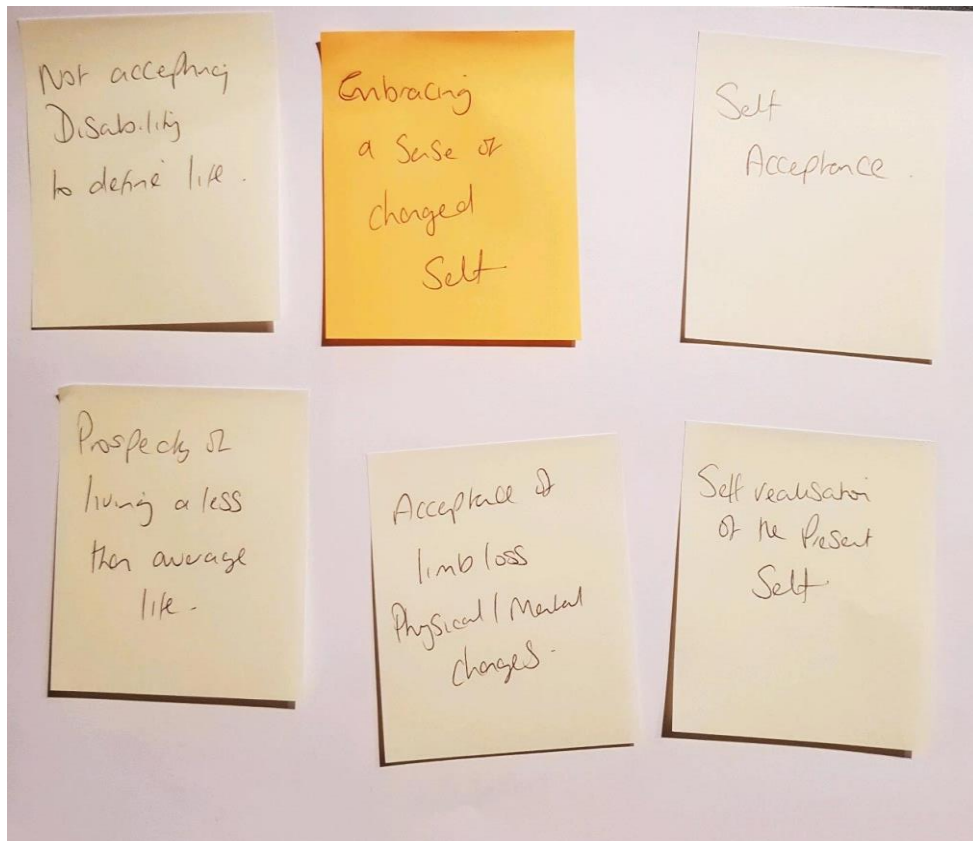 Not accepting
Disability
to define life.
Embracing
a Sense of
changed
Self
Self
Acceptance.
Prospects of
living a less
than average
life.
Acceptance of
limb loss
Physical / Mental
changes.
Self realisation
of the Present
Self